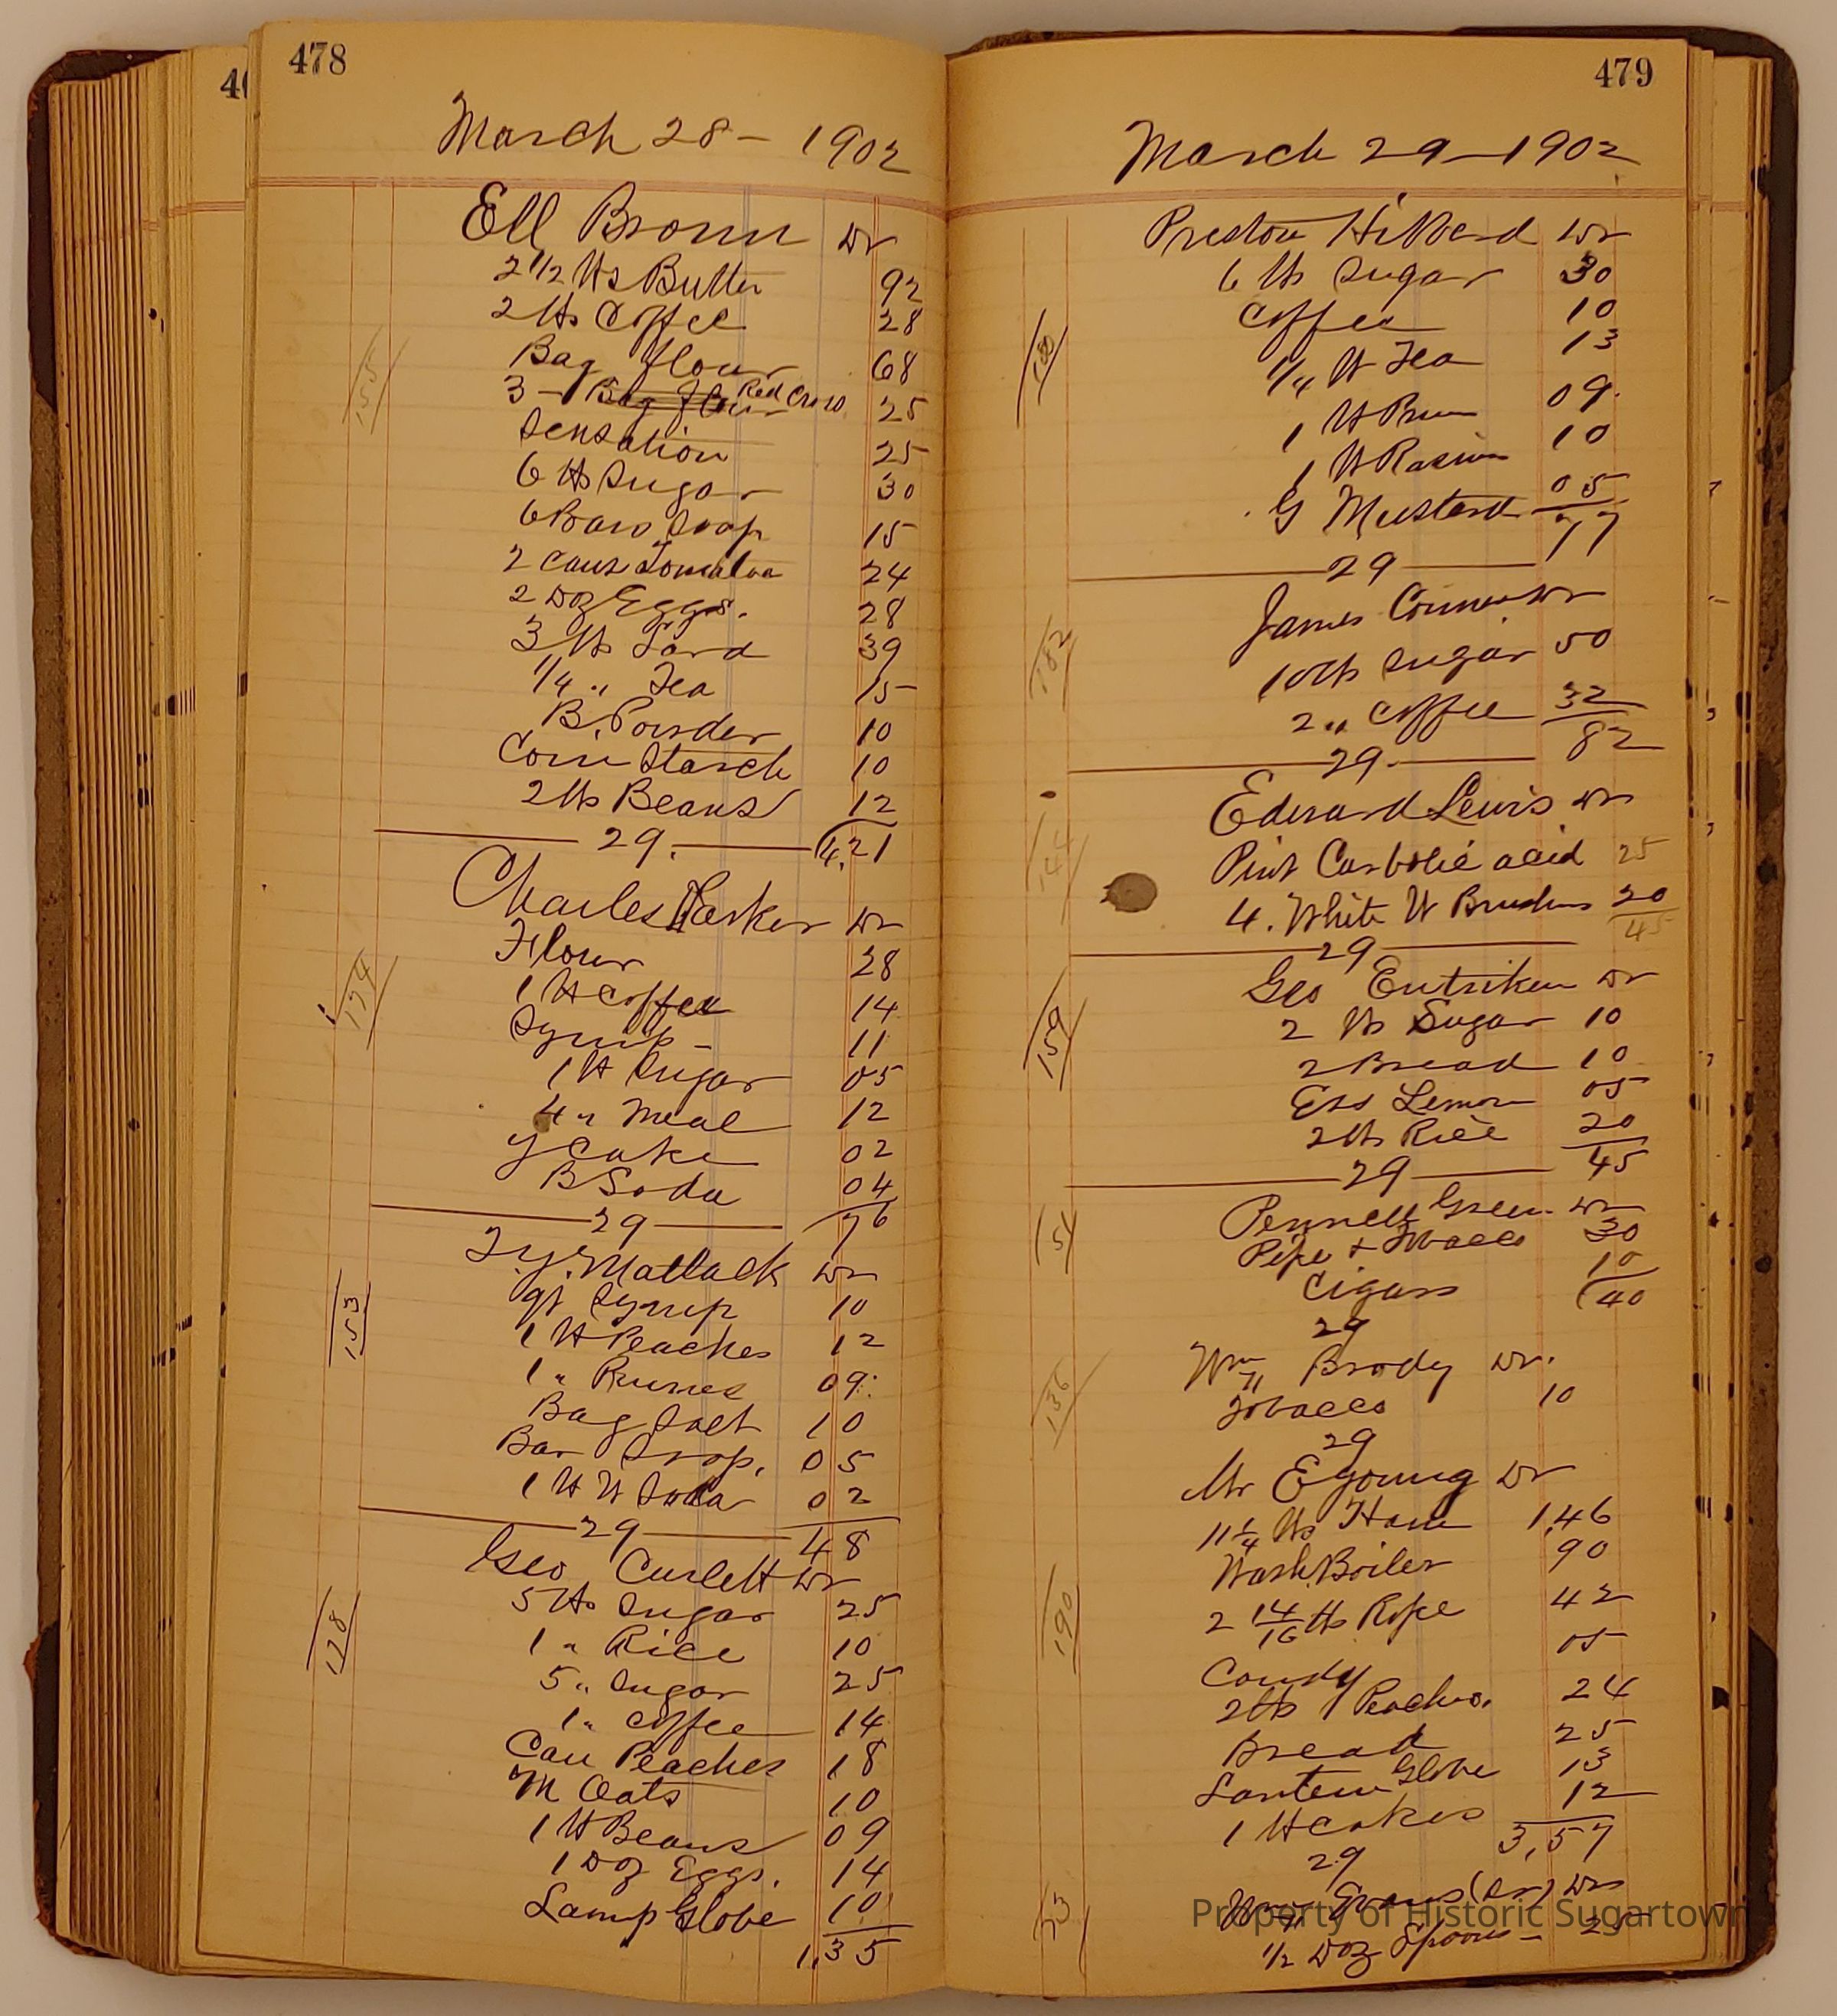 478
March 28 - 1902
Ell Brown Dr
2 1/2 lbs Butter 92
2 lbs Coffee 28
Bag flour 68
3 - Bag flour Red Cross 25
Sensation 25
6 lbs Sugar 30
6 Bars Soap 15
2 cans Tomatoes 24
2 Doz Eggs. 28
3 lbs Lard 39
1/4 " Tea 15
B. Powder 10
Corn Starch 10
2 lbs Beans 12
29. 4.21
Charles Parker Dr
Flour 28
1 lb Coffee 14
Syrup - 11
1 lb Sugar 05
174
155
4 " Meal 12
y Cake 02
B Soda 04
29 76
T.y. Matlack Dr
qt Syrup 10
1 lb Peaches 12
153
1 " Prunes 09
Bag Salt 10
Bar Soap. 05
1 lb W Soda 02
29 48
Geo Curlett Dr
5 lbs Sugar 25
1 " Rice 10
128
5 " Sugar 25
1 " Coffee 14
Can Peaches 18
M Oats 10
1 lb Beans 09
1 Doz Eggs. 14
Lamp Globe 10
1,35
479
March 29 - 1902
Preston Hibberd Dr
6 lbs Sugar 30
Coffee 10
1/4 lb Tea 13
1 lb Prun 09.
1 lb Rasins 10
G Mustard 05
77
29
James Connor Dr
182
10 lb Sugar 50
2 " Coffee 32
82
29
Edward Lewis Dr
Pint Carbolic acid 25
144
4. White W Brushes 20
45
29
Geo Entriken Dr
2 lbs Sugar 10
159
2 Bread 10
Ess Lemon 05
2 lbs Rice 20
45
29
Pennell Green Dr
51
Pipe + Tobacco 30
Cigars 10
40
29
Wm Brody Dr.
136
Tobacco 10
29
Mr E young Dr
11 1/4 lbs Ham 1,46
Wash Boiler 90
190
2 14/16 lbs Rope 42
Candy 05
2 lbs Peaches. 24
Bread 25
Lantern Globe 13
1 lb cakes 12
3,57
29
Wm Evans (Sr) Dr
1/2 Doz Spoons - 25
Property of Historic Sugartown